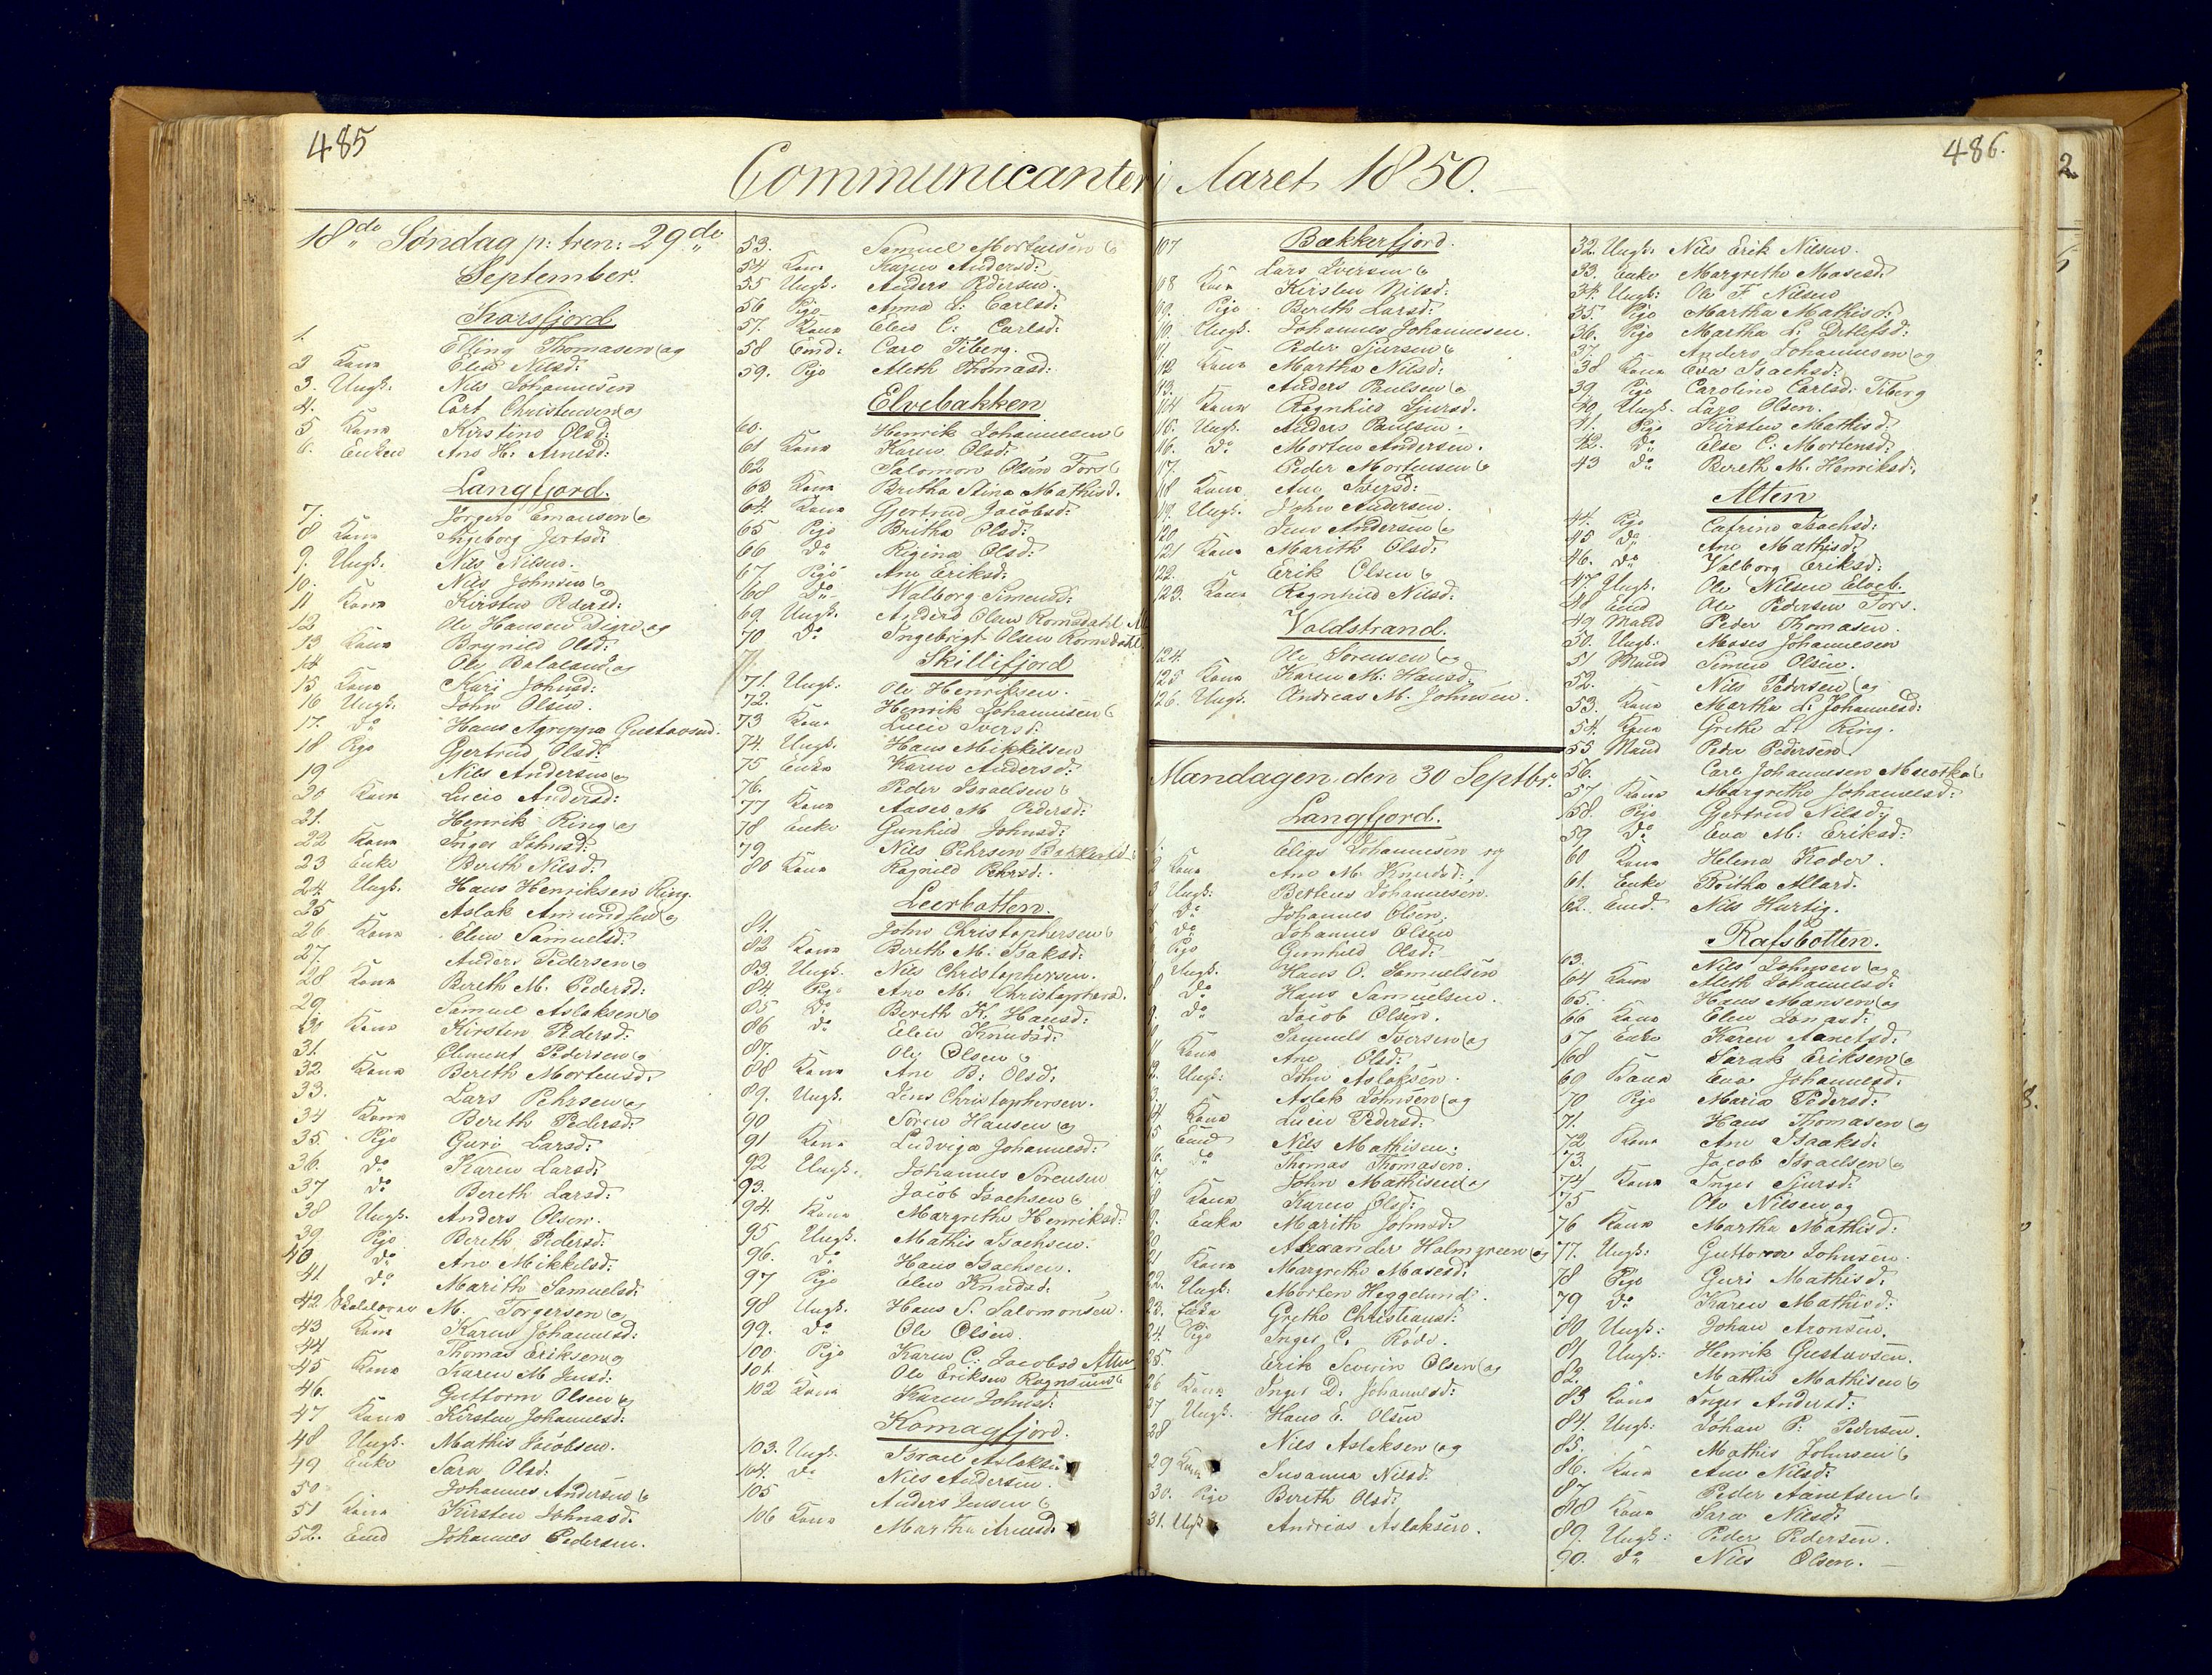 485
486.
2
Communicanter i Aaret 1850.
18de Søndag p: tren: 29de
September.
Karsfjord
1. Elling Thomasen og
2 Kona Elise Nilsd:
3. Ungk. Nils Johannesen
4. Cort Christensen og
5 Kona Kirstine Olsd:
6. Enken Ane H: Arnesd:
Langfjord.
7. Jørgen Emausen og
8 Kona Ingeborg
9. Ungk. Nils Nilsen.
10. Nils Johnsen og
11 Kona Kirsten Pedersd:
12 Ole Hansen Digre og
13 Kona Brynild Olsd:
14 Ole Balaland og
15 Kona Kari Johnsd:
16 Ungk. John Olsen.
17. do Hans Agreppa Gustavsend.
18 Pige Gjertrud Olsd:
19 Nils Andersen og
20 Kona Lucie Andersd:
21. Henrik Ring og
22 Kona Inger Johnsd:
23 Enke Bereth Nilsd:
24. Ungk. Hans Henriksen Ring.
25 Aslak Amundsen og
26 Kona Elen Samuelsd:
27. Anders Pedersen og
28 Kona Bereth M. Pedersd:
29. Samuel Aslaksen og
30 Kona Kirsten Pedersd:
31. Clement Pedersen og
32. Kona Bereth Mortensd:
33. Lars Pehrsen og
34 Kona Bereth Pedersd:
35. Pige Guri Larsd:
36. do Karen Larsd:
37 do Bereth Larsd:
38 Ungk. Anders Olsen.
39. Pige Bereth Pedersd:
40 do Ane Mikkelsd:
41. do Marith Samuelsd:
42. Skolelærer M. Torgersen og
43 Kona Karen Johannesd:
44. Thomas Eriksen og
45 Kona Karen M. Jensd:
46. Guttorm Olsen og
47 Kona Kirsten Johannesd:
48 Ungk. Mathis Jacobsen.
49 Enke Sara Olsd:
50 Johannes Andersen og
51 Kona Kirsten Johnasd.
52. Emd Johannes Pedersen.
53. Samuel Mortensen og
54 Kona Karen Andersd:
55 Ungk. Anders Pedersen.
56 Pige Anna L: Carlsd:
57. Kona Elen C: Carlsd:
58 Emd: Carl Tiberg.
59. Pige Aleth Thomasd:
Elvebakken
60. Henrik Johannesen og
61 Kona Karen Olsd:
62 Salomon Olsen Fors og
63 Kona Britha Stina Mathisd.
64. Kona Gjertrud Jacobsd:
65 Pige Britha Olsd:
66 do Regina Olsd:
67 Pige Ane Eriksd:
68 do Walborg Simensd:
69. Ungk. Anders Olsen Romsdahl
70 do Ingebrigt Olsen Romsdahl.
Skillifjord
71. Ungk. Ole Henriksen.
72. Henrik Johannesen og
73 Kona Lucie Iversd:
74. Ungk. Hans Mikkelsen
75 Enke Karen Andersd:
76. Peder Israelsen og
77 Kona Aasel M. Pedersd:
78 Enke Gunhild Johnsd:
79. Nils Pehrsen
80 Kona Ragnild Pehrsd:
Leerbotten.
81. John Christophersen og
82 Kona Bereth M. Isaksd:
83. Ungk. Nils Christophersen.
84. Pige Ane M. Christophersd.
85 do Bereth K. Hansd:
86 do Eelen Knudsd:
87. Ole Olsen og
88 Kona Ane B: Olsd:
89. Ungk. Jens Christophersen.
90 Søren Hansen og
91 Kona Ludviga Johannesd:
92 Ungk. Johannes Sørensen
93. Jacob Isachsen og
94. Kona Margrethe Henriksd:
95 Ungk. Mathis Isachsen.
96. do Hans Isachsen.
97 Pige Elen Knudsd:
98 Ungk. Hans S. Salomonsen.
99. do Ole Olsen.
100. Pige Karen C: Jacobsd Alten
101. Ole Eriksen Rognsund og
102 Kona Karen Johnsd:
Komagfjord.
103. Ungk. Israel Aslaksen
104. do Nils Andersen.
105 Anders Jensen og
106 Kona Martha Arnesd.
107 Bækkerfjord.
Lars Iversen og
108 Kona Kirsten Nilsd:
109. Pige Bereth Larsd:
110. Ungk. Johannes Johannesen.
111. Peder Sjursen og
112 Kona Martha Nilsd:
113. Anders Paulsen og
114 Kona Ragnhild Sjursd.
115. Ungk. Anders Paulsen.
116. do Morten Andersen.
117. Peder Mortensen og
118 Kona Ane Iversd:
119. Ungk. John Andersen.
120. Jens Andersen og
121 Kona Marith Olsd:
122. Erik Olsen og
123. Kona Ragnhild Nilsd:
Voldstrand.
124. Ole Sørensen og
125 Kona Karen M: Hansd.
126. Ungk. Andreas M. Johnsen.
Mandagen den 30 Septbr.
Langfjord.
1. Elias Johannesen og
2 Kona Ane M. Knudsd:
3 Ungk: Berteus Johannesen.
4 do Johannes Olsen.
5 do Johannes Olsen
6 Pige Gunhild Olsd:
7 Ungk. Hans O. Samuelsen
8 do Hans Samuelsen.
9. do Jacob Olsen.
10 Samuel Iversen og
11 Kona Ane Olsd:
12. Ungk: John Aslaksen.
13. Aslak Johnsen og
14 Kona Lucie Pedersd:
15 Emd Nils Mathisen.
16. do Thomas Thomasen.
17. John Mathisen og
18 Kona Karen Olsd:
19. Enke Marith Johnsd:
20 Alexander Holmgreen og
21 Kona Margrethe Mosesd:
22. Ungk: Morten Heggelund.
23. Enke Grethe Christiansd:
24. Pige Inger C. Røde.
25. Erik Severin Olsen og
26 Kona Inger D. Johannesd:
27 Ungk. Hans E. Olsen
28 Nils Aslaksen og
29 Kona Susanna Nilsd:
30. Pige Bereth Olsd:
31. Ungk Andreas Aslaksen.
32. Ungk: Nils Erik Nilsen.
33. Enke Margrethe Mosesd:
34. Ungk: Ole F. Nilsen
35. Pige Martha Mathisd:
36. Pige Martha L: Ditlefsd:
37. Anders Johannesen og
38 Kona Eva Isachsd:
39 Pige Caroline Carlsd: Tiberg
40. Ungk. Lars Olsen.
41. Pige Kirsten Mathisd.
42. do Else C: Mortensd:
43 do Bereth M. Henriksd:
Alten
44. Pige Catrine Isachsd:
45 do Ane Mathisd:
46. do Valborg Eriksd:
47. Ungk. Ole Nilsen Elveb.
48 Emd Ole Pedersen Fors.
49 Mand Peder Thomasen.
50. Ungk: Moses Johannesen
51 Mand Simen Olsen.
52. Nils Pedersen og
53. Kona Martha L: Johannesd:
54. Kona Grethe L. Ring.
55 Mand Peder Pedersen.
56. Carl Johannesen og
57. Kona Margrethe Johannesd:
58. Pige Gjertrud Nilsd:
59 do Eva M: Eriksd:
60 Kona Helena Kader.
61. Enke Britha Allard.
62. Emd. Nils Hurtig.
Rafsbotten.
63. Nils Johnsen og
64 Kona Aleth Johannesd:
65. Hans Mansen og
66 Kona Elen Jonasd:
67 Enke Karen Aanetsd:
68 Sarak Eriksen og
69 Kona Eva Johannesd:
70 Pige Maria Pedersd:
71. Hans Thomasen og
72 Kona Ane Isaaksd:
73. Jacob Israelsen og
74 Kona Inger Sjursd:
75 Ole Nilsen og
76 Kona Martha Mathisd:
77. Ungk: Guttorm Johnsen.
78 Pige Guri Mathisd:
79 do Karen Mathisd:
80 Ungk: Johan Aronsen.
81. Ungk: Henrik Gustavsen.
82. Mathis Mathisen og
83 Kona Inger Andersd:
84. Ungk: Johan P: Pedersen.
85. Mathis Johnsen og
86. Kona Ane Nilsd:
87 Peder Aanetsen og
88 Kona Sara Nilsd:
89. Ungk: Peder Pedersen.
90. do Nils Olsen.